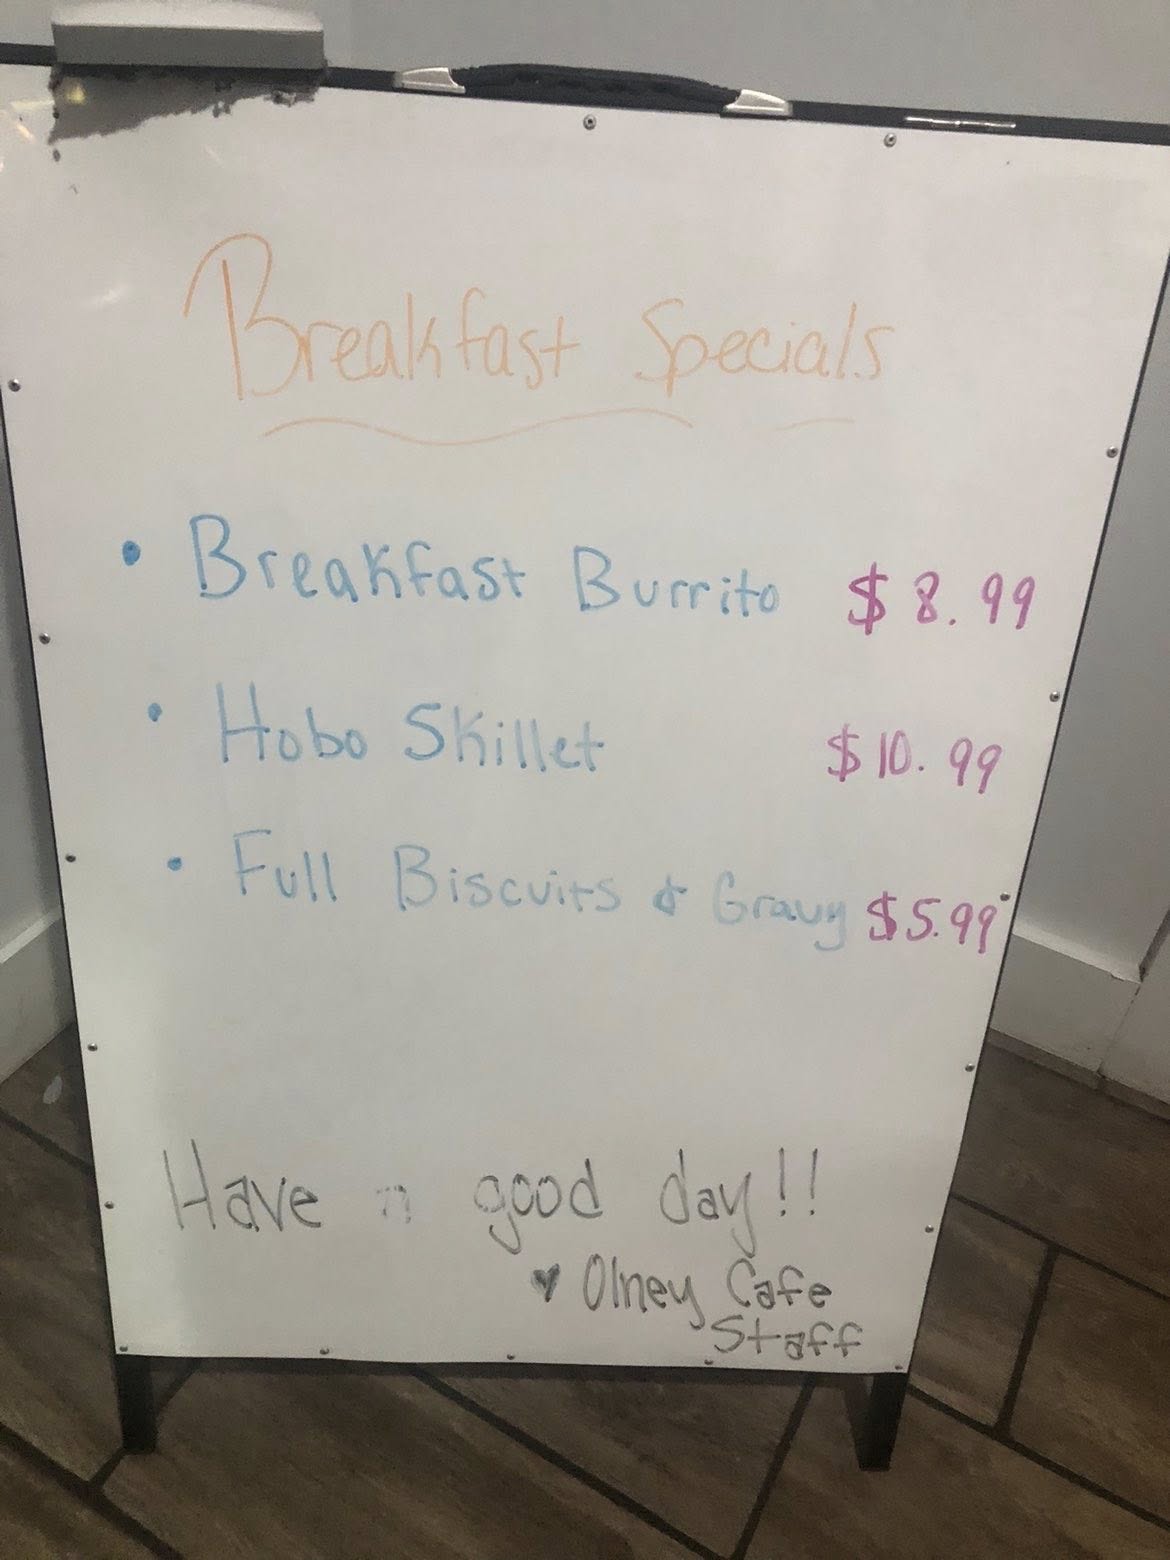 Breakfast Specials
• Breakfast Burrito $8.99
• Hobo Skillet $10.99
• Full Biscuits & Gravy $5.99
Have a good day!!
♥ Olney Cafe
Staff